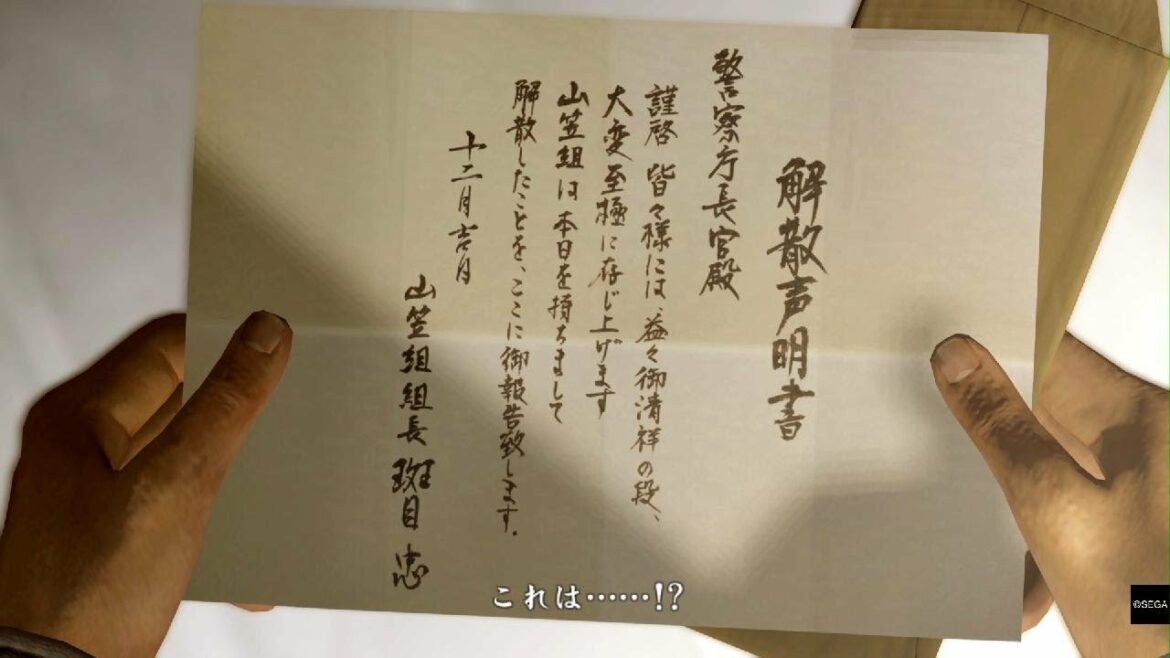 解散声明書
警察庁長官殿
謹啓 皆々様には、益々御清祥の段、
大変至極に存じ上げます
山笠組は本日を持ちまして
解散したことを、ここに御報告致します。
十二月吉日
山笠組組長 斑目 忠
これは……!?
©SEGA